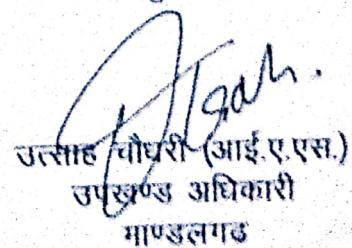 उत्साह चौधरी (आई.ए.एस.)
उपखण्ड अधिकारी
माण्डलगढ